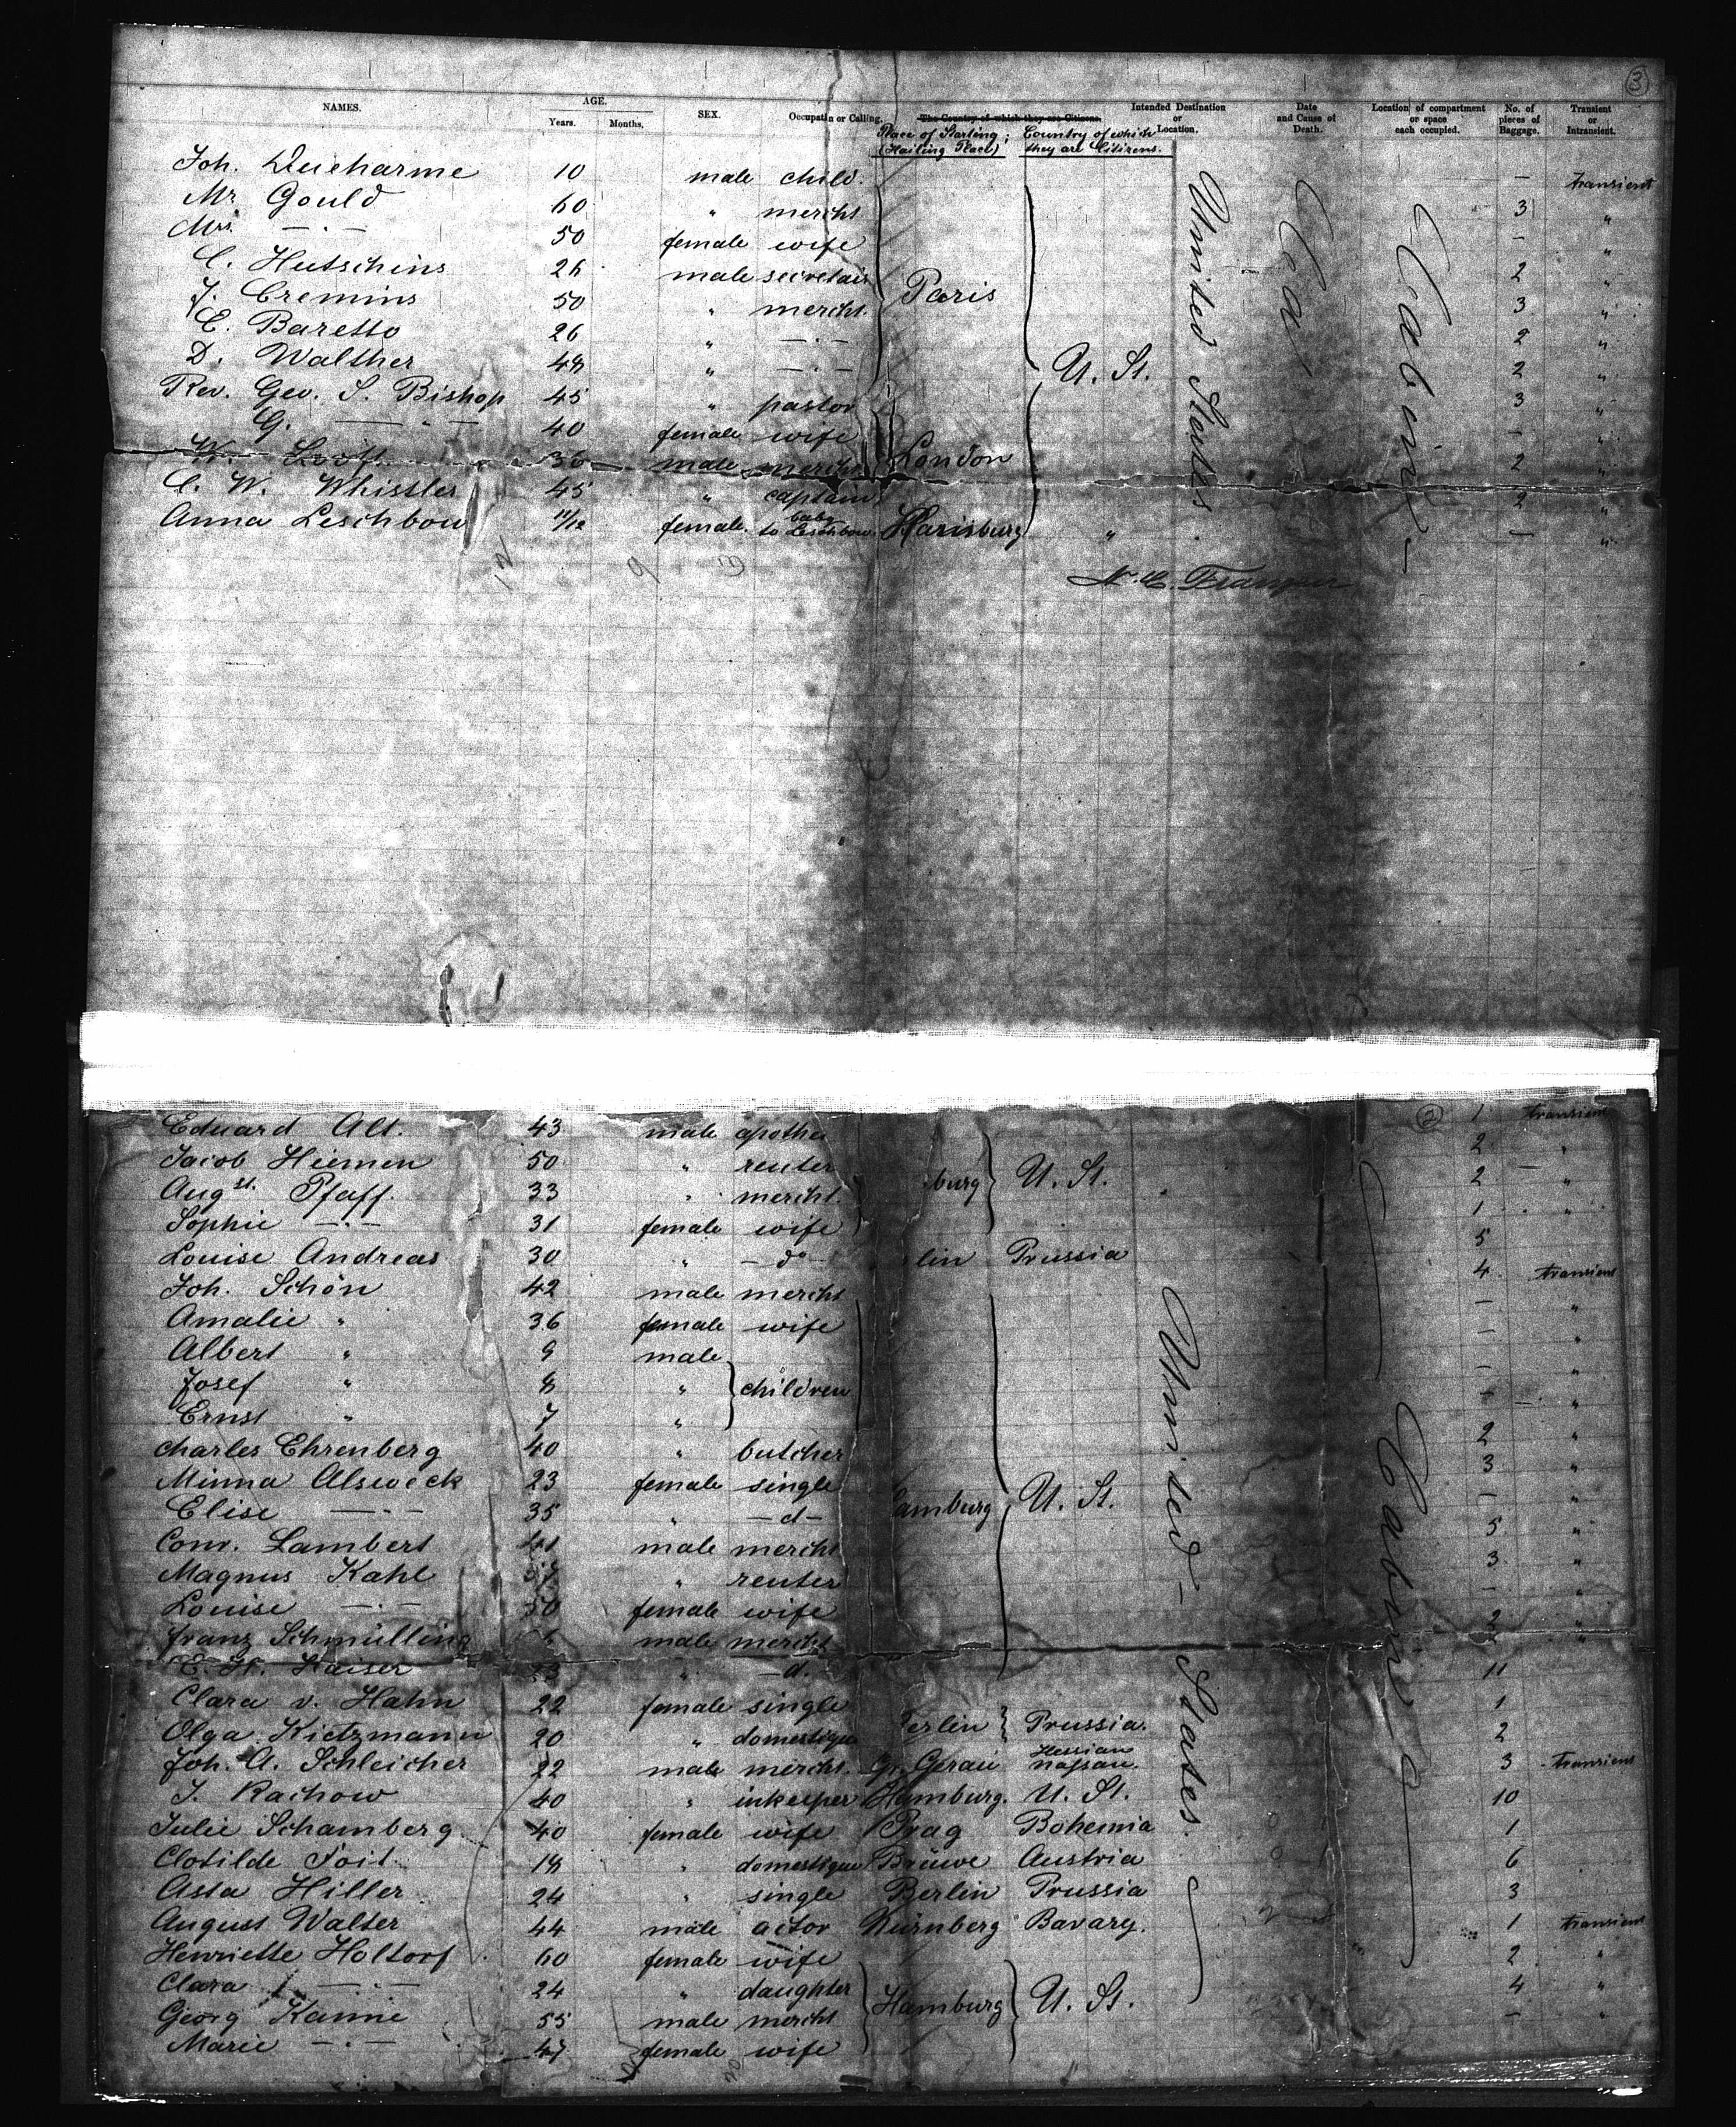 3
NAMES. AGE. Years. Months. SEX. Occupation or Calling. The Country of which they are Citizens. Intended Destination or Location. Date and Cause of Death. Location of compartment or space each occupied. No. of pieces of Baggage. Transient or Intransient.
Place of Starting; (Hailing Place) Country of which they are Citizens.
Joh. Ducharme 10 male child. — transient
Mr Gould 60 " mercht 3 "
Mrs —"— 50 female wife — "
C. Hutschins 26 male secretair 2 "
J. Cremins 50 " mercht. Paris 3 "
E. Baretto 26 " —"— 2 "
D. Walther 48 " —"— U. St. 2 "
Rev. Geo. S. Bishop 45 " pastor 3 "
G. —"— 40 female wife — "
W. 36 male mercht London 2 "
C. W. Whistler 45 " captain 2 "
Anna Leschbow 11/12 female. baby to Leschbow. Harisburg " — "
United States
Cabin
2
Eduard Alt. 43 male apothe 1 transient
Jacob Hiemen 50 " renter 2 "
Augst. Pfaff. 33 " mercht. burg U. St. 2 "
Sophie —"— 31 female wife 1 "
Louise Andreas 30 " — do lin Prussia 5
Joh. Schön 42 male mercht 4 transient
Amalie " 36 female wife — "
Albert " 9 male — "
Josef " 8 " children — "
Ernst " 7 " — "
Charles Ehrenberg 40 " butcher 2 "
Minna Alsweck 23 female single 3 "
Elise —"— 35 " —d— amburg U. St. — "
Conr. Lambert 41 male mercht 5 "
Magnus Kahl " renter 3 "
Louise —"— 50 female wife — "
Franz Schmülling male mercht 2 "
E. H. Kaiser " —d. 11
Clara v. Hahn 22 female single 1
Olga Kietzmann 20 " domestique Berlin Prussia. 2
Joh. A. Schleicher 22 male mercht. Gr. Gerau Hessian Nassau. 3 transient
J. Rachow 40 " inkeeper Hamburg. U. St. 10
Julie Schamberg 40 female wife Prag Bohemia 1
Clotilde Foit 18 " domestique Brüwe Austria 6
Asta Hiller 24 " single Berlin Prussia 3
August Walter 44 male actor Nürnberg Bavary. 1 transient
Henriette Holtorf 60 female wife 2 "
Clara —"— 24 " daughter Hamburg U. St. 4 "
Georg Kanne 55 male mercht — "
Marie —"— 47 female wife
United States
Cabin